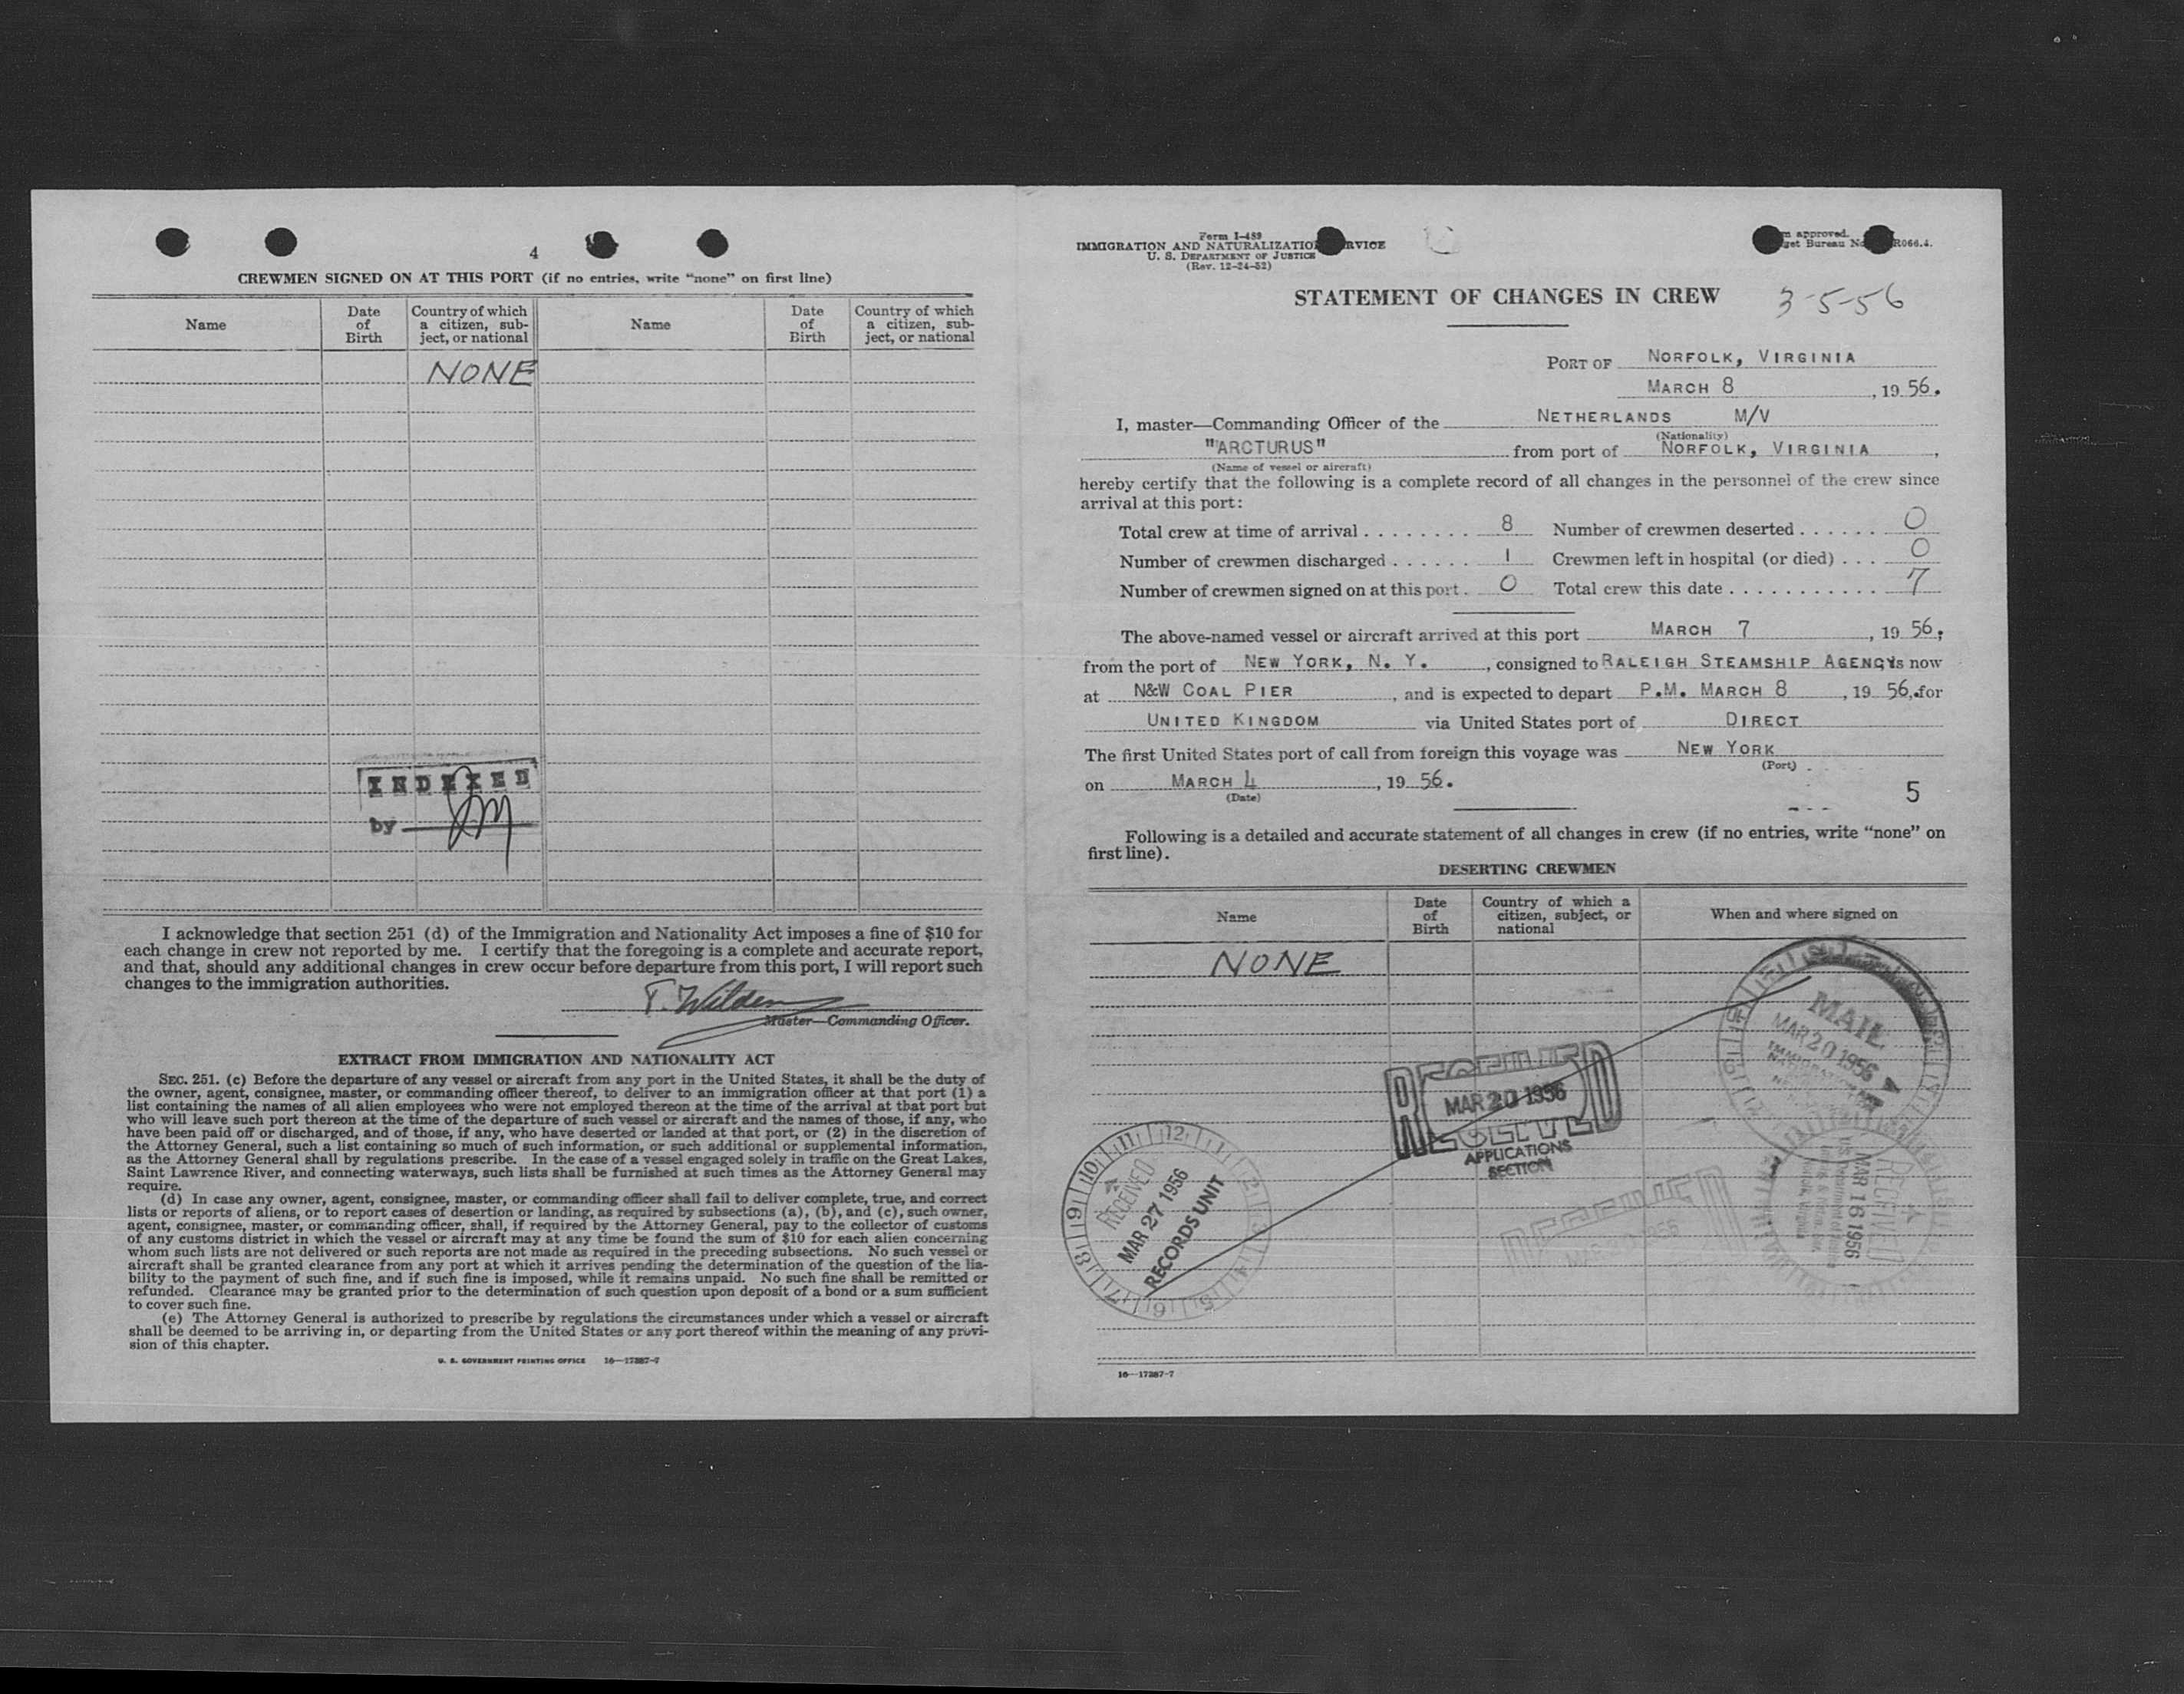 4
CREWMEN SIGNED ON AT THIS PORT (if no entries, write "none" on first line)
Name
Date of Birth
Country of which a citizen, subject, or national
Name
Date of Birth
Country of which a citizen, subject, or national
NONE
INDEXED
by
I acknowledge that section 251 (d) of the Immigration and Nationality Act imposes a fine of $10 for
each change in crew not reported by me. I certify that the foregoing is a complete and accurate report,
and that, should any additional changes in crew occur before departure from this port, I will report such
changes to the immigration authorities.
Master—Commanding Officer.
EXTRACT FROM IMMIGRATION AND NATIONALITY ACT
SEC. 251. (c) Before the departure of any vessel or aircraft from any port in the United States, it shall be the duty of
the owner, agent, consignee, master, or commanding officer thereof, to deliver to an immigration officer at that port (1) a
list containing the names of all alien employees who were not employed thereon at the time of the arrival at that port but
who will leave such port thereon at the time of the departure of such vessel or aircraft and the names of those, if any, who
have been paid off or discharged, and of those, if any, who have deserted or landed at that port, or (2) in the discretion of
the Attorney General, such a list containing so much of such information, or such additional or supplemental information,
as the Attorney General shall by regulations prescribe. In the case of a vessel engaged solely in traffic on the Great Lakes,
Saint Lawrence River, and connecting waterways, such lists shall be furnished at such times as the Attorney General may
require.
(d) In case any owner, agent, consignee, master, or commanding officer shall fail to deliver complete, true, and correct
lists or reports of aliens, or to report cases of desertion or landing, as required by subsections (a), (b), and (c), such owner,
agent, consignee, master, or commanding officer, shall, if required by the Attorney General, pay to the collector of customs
of any customs district in which the vessel or aircraft may at any time be found the sum of $10 for each alien concerning
whom such lists are not delivered or such reports are not made as required in the preceding subsections. No such vessel or
aircraft shall be granted clearance from any port at which it arrives pending the determination of the question of the lia-
bility to the payment of such fine, and if such fine is imposed, while it remains unpaid. No such fine shall be remitted or
refunded. Clearance may be granted prior to the determination of such question upon deposit of a bond or a sum sufficient
to cover such fine.
(e) The Attorney General is authorized to prescribe by regulations the circumstances under which a vessel or aircraft
shall be deemed to be arriving in, or departing from the United States or any port thereof within the meaning of any provi-
sion of this chapter.
U. S. GOVERNMENT PRINTING OFFICE 16—17287-7
Form I-489
IMMIGRATION AND NATURALIZATIO RVICE
U. S. DEPARTMENT OF JUSTICE
(Rev. 12-24-52)
m approved.
get Bureau No R066.4.
STATEMENT OF CHANGES IN CREW 3-5-56
PORT OF NORFOLK, VIRGINIA
MARCH 8, 19 56.
I, master—Commanding Officer of the NETHERLANDS M/V
(Nationality)
"ARCTURUS" from port of NORFOLK, VIRGINIA,
(Name of vessel or aircraft)
hereby certify that the following is a complete record of all changes in the personnel of the crew since
arrival at this port:
Total crew at time of arrival . . . . . . . . 8 Number of crewmen deserted . . . . . . 0
Number of crewmen discharged . . . . . . 1 Crewmen left in hospital (or died) . . . 0
Number of crewmen signed on at this port . 0 Total crew this date . . . . . . . . . . . 7
The above-named vessel or aircraft arrived at this port MARCH 7, 19 56,
from the port of NEW YORK, N. Y., consigned to RALEIGH STEAMSHIP AGENCY is now
at N&W COAL PIER, and is expected to depart P.M. MARCH 8, 19 56, for
UNITED KINGDOM via United States port of DIRECT
The first United States port of call from foreign this voyage was NEW YORK
(Port)
on MARCH 4, 19 56.
(Date)
5
Following is a detailed and accurate statement of all changes in crew (if no entries, write "none" on
first line).
DESERTING CREWMEN
Name
Date of Birth
Country of which a citizen, subject, or national
When and where signed on
NONE
MAIL
MAR 20 1956
RECEIVED
MAR 20 1956
APPLICATIONS
SECTION
RECEIVED
MAR 27 1956
RECORDS UNIT
RECEIVED
MAR 16 1956
16—17287-7